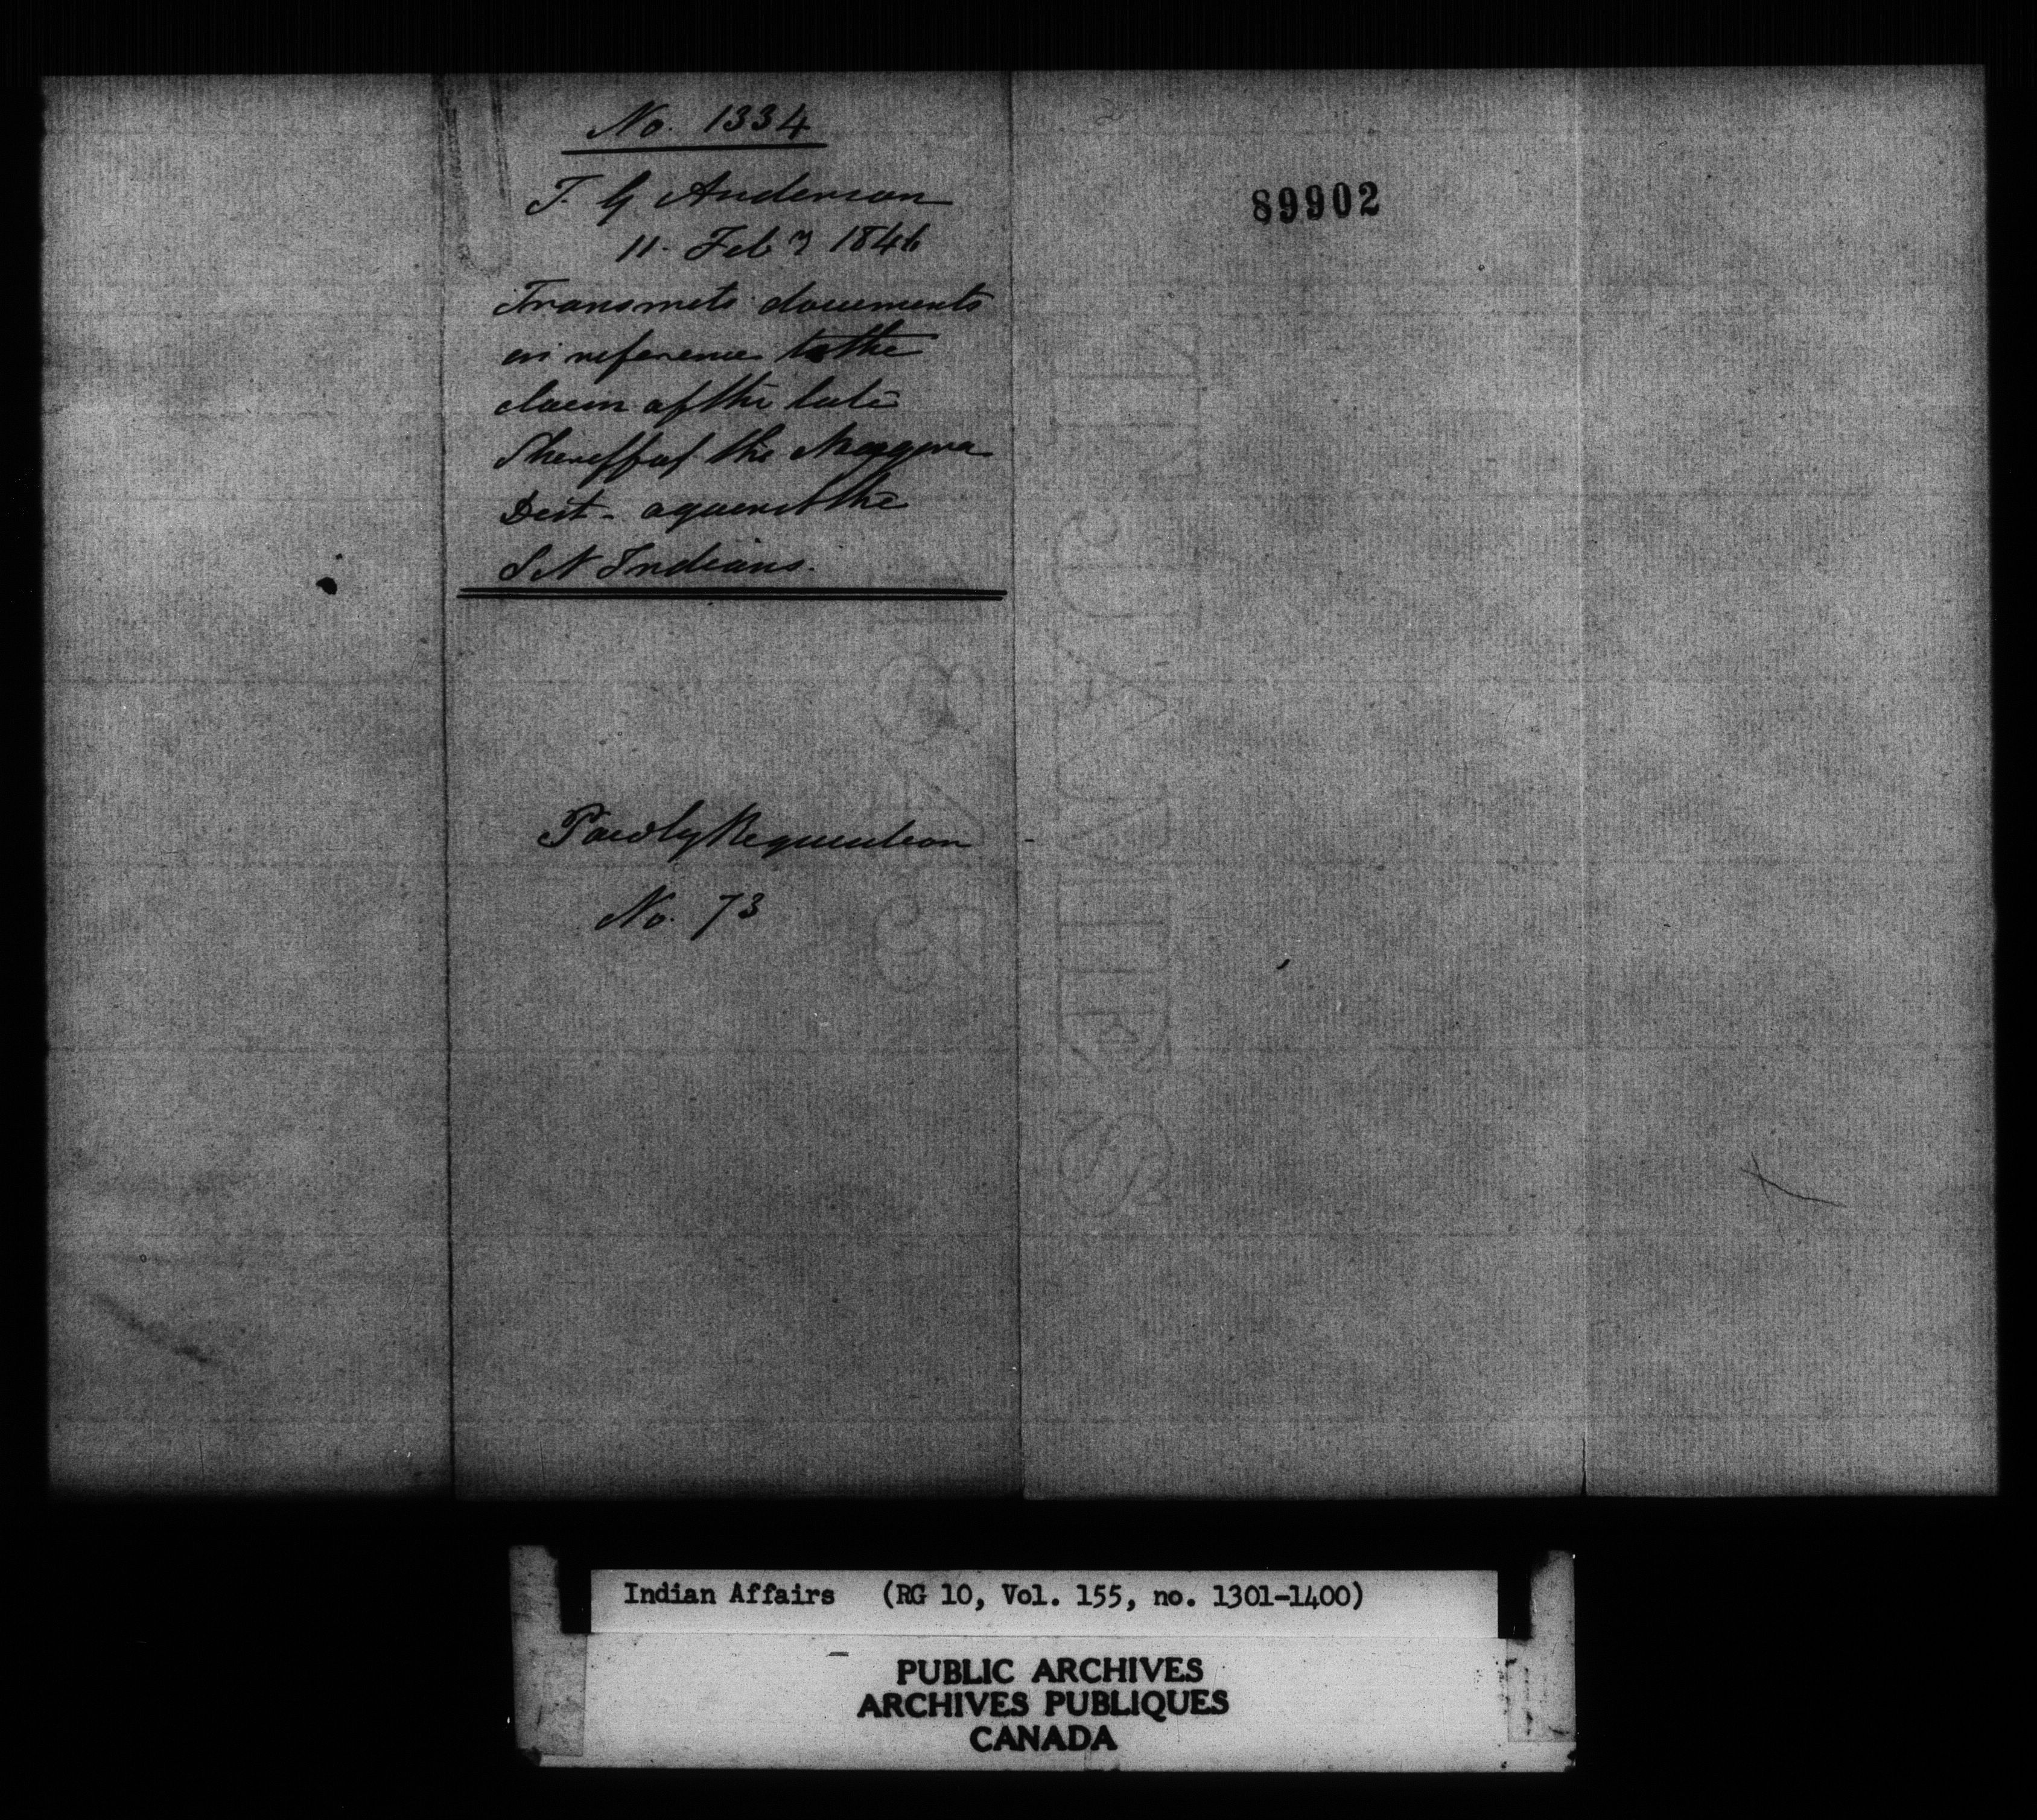 No. 1334
T. G Anderson
11. Feby 1846
Transmits documents
in reference to the
claim of the late
Sheriff of the Niagara
Dist. against the
S N Indians.
Paid by Requisition
No. 73
89902
Indian Affairs (RG 10, Vol. 155, no. 1301-1400)
PUBLIC ARCHIVES
ARCHIVES PUBLIQUES
CANADA